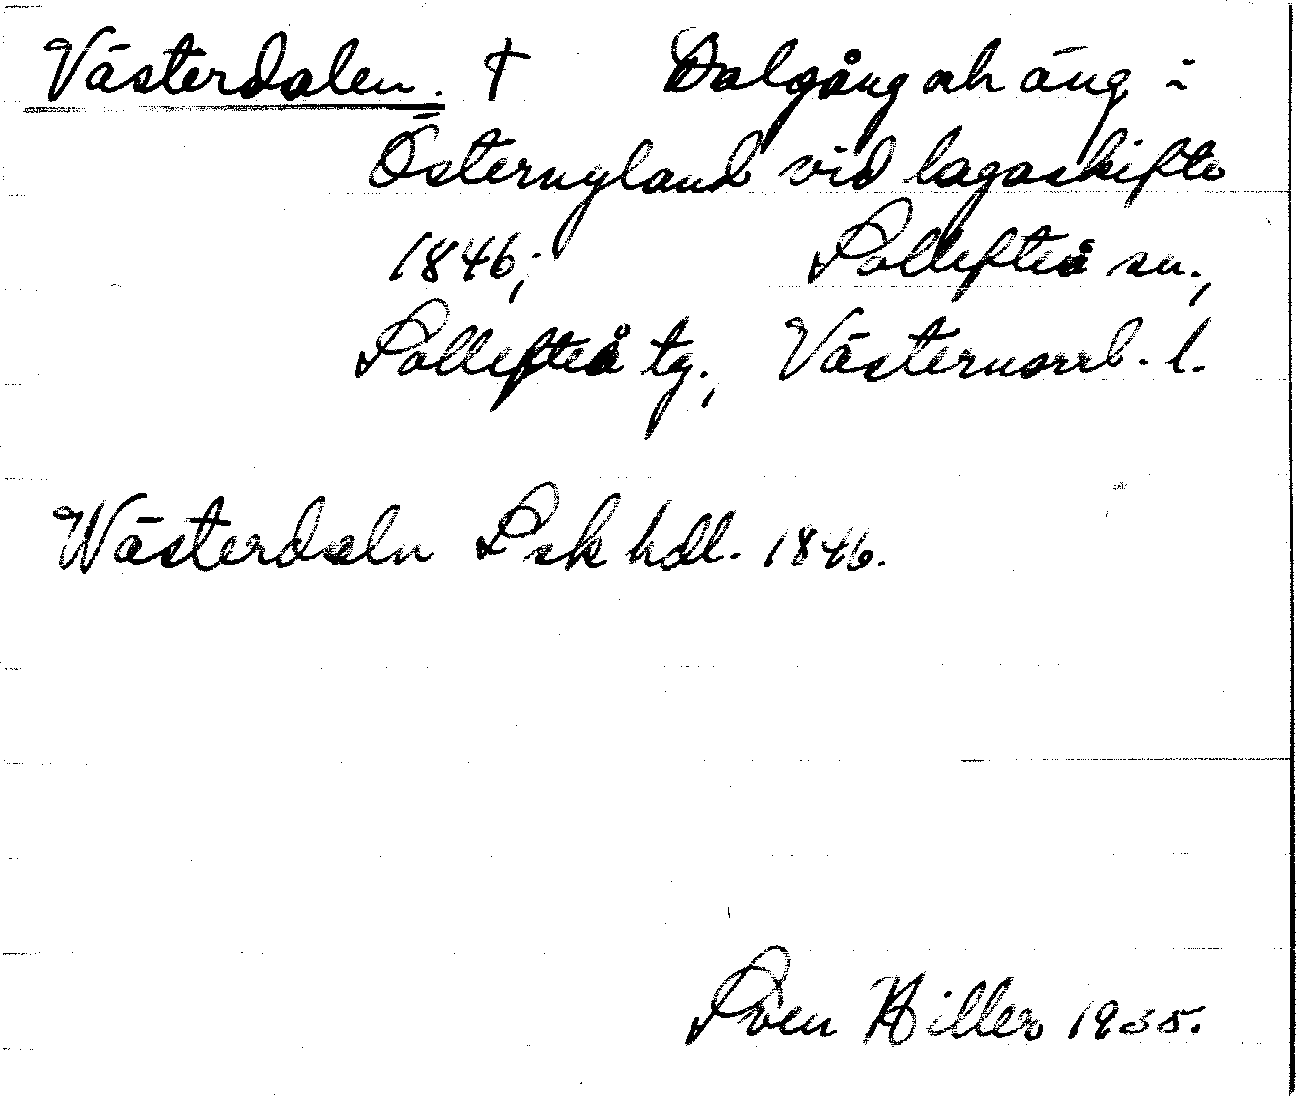 Västerdalen. † Dalgång och äng i
Östernyland vid lagaskifte
1846; Sollefteå sn.,
Sollefteå tg., Västernorrl. l.
Wästerdaln Lsk hdl. 1846.
Sven Hiller 1935.